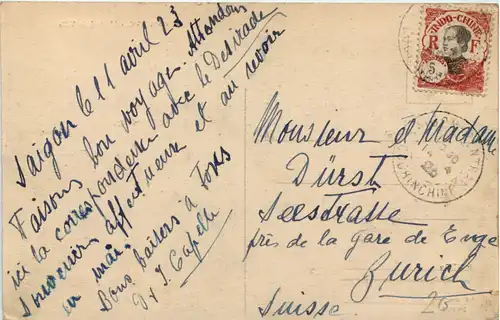 Saigon le 11 avril 23
Faisons bon voyage. Attendons
ici la correspondance avec le Desirade
Souvenirs affectueux et au revoir
en mai.
Bons baisers à Tous
D & J. Capelle
INDO-CHINE
R F
5
Monsieur et Madame
Dürst
Seestrasse
près de la gare de Enge
Zurich
Suisse.
COCHINCHINE
26